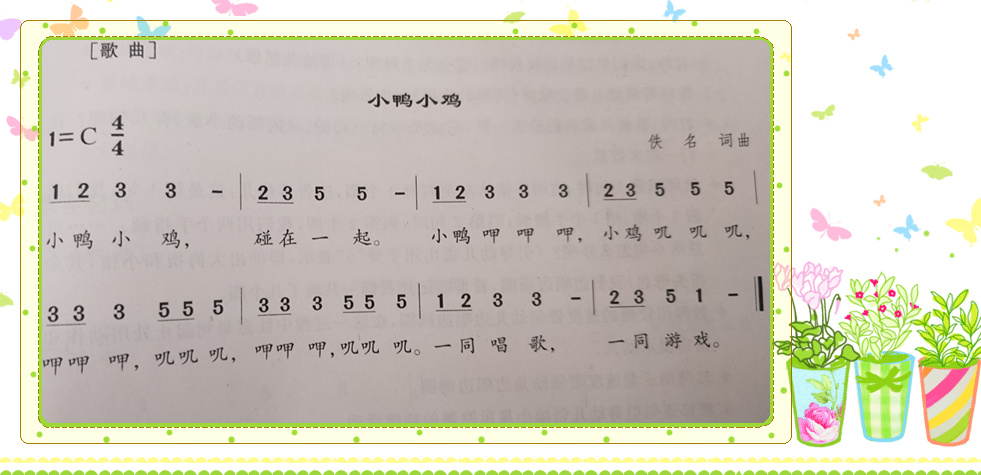 [歌 曲]
小鸭小鸡
1=C 4/4
佚 名 词曲
1 2 3 3 - | 2 3 5 5 - | 1 2 3 3 3 | 2 3 5 5 5 |
小 鸭 小 鸡， 碰 在 一 起。 小鸭 呷 呷 呷， 小鸡 叽 叽 叽，
3 3 3 5 5 5 | 3 3 3 5 5 5 | 1 2 3 3 - | 2 3 5 1 - ‖
呷呷 呷， 叽叽 叽， 呷呷 呷， 叽叽 叽。 一 同 唱 歌， 一 同 游 戏。